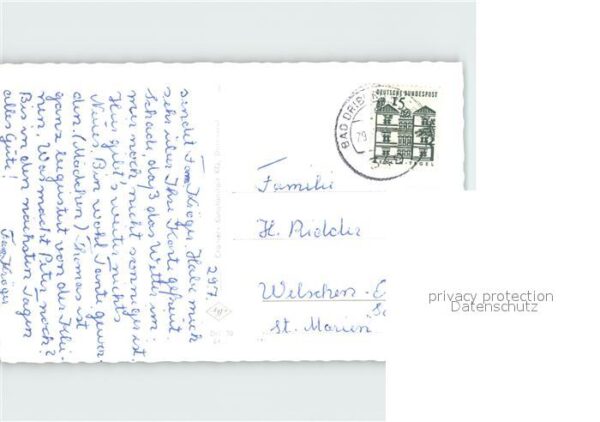 29.7.
sendet Fam. Kröger. Habe mich
sehr über Ihre Karte gefreut.
Schade daß das Wetter im
mer noch nicht sonniger ist.
Hier gibt's weiter nichts
Neues. Bin wohl Tante gewor-
den. (Mädchen) Thomas ist
ganz begeistert von der Klei-
nen. Was macht Peter noch?
Bis in den nächsten Tagen
alles Gute!
Fam. Kröger
DEUTSCHE BUNDESPOST
15
TEGEL
BAD DRIB
Familie
H. Ridder
Welschen-E
St. Marien
privacy protection
Datenschutz